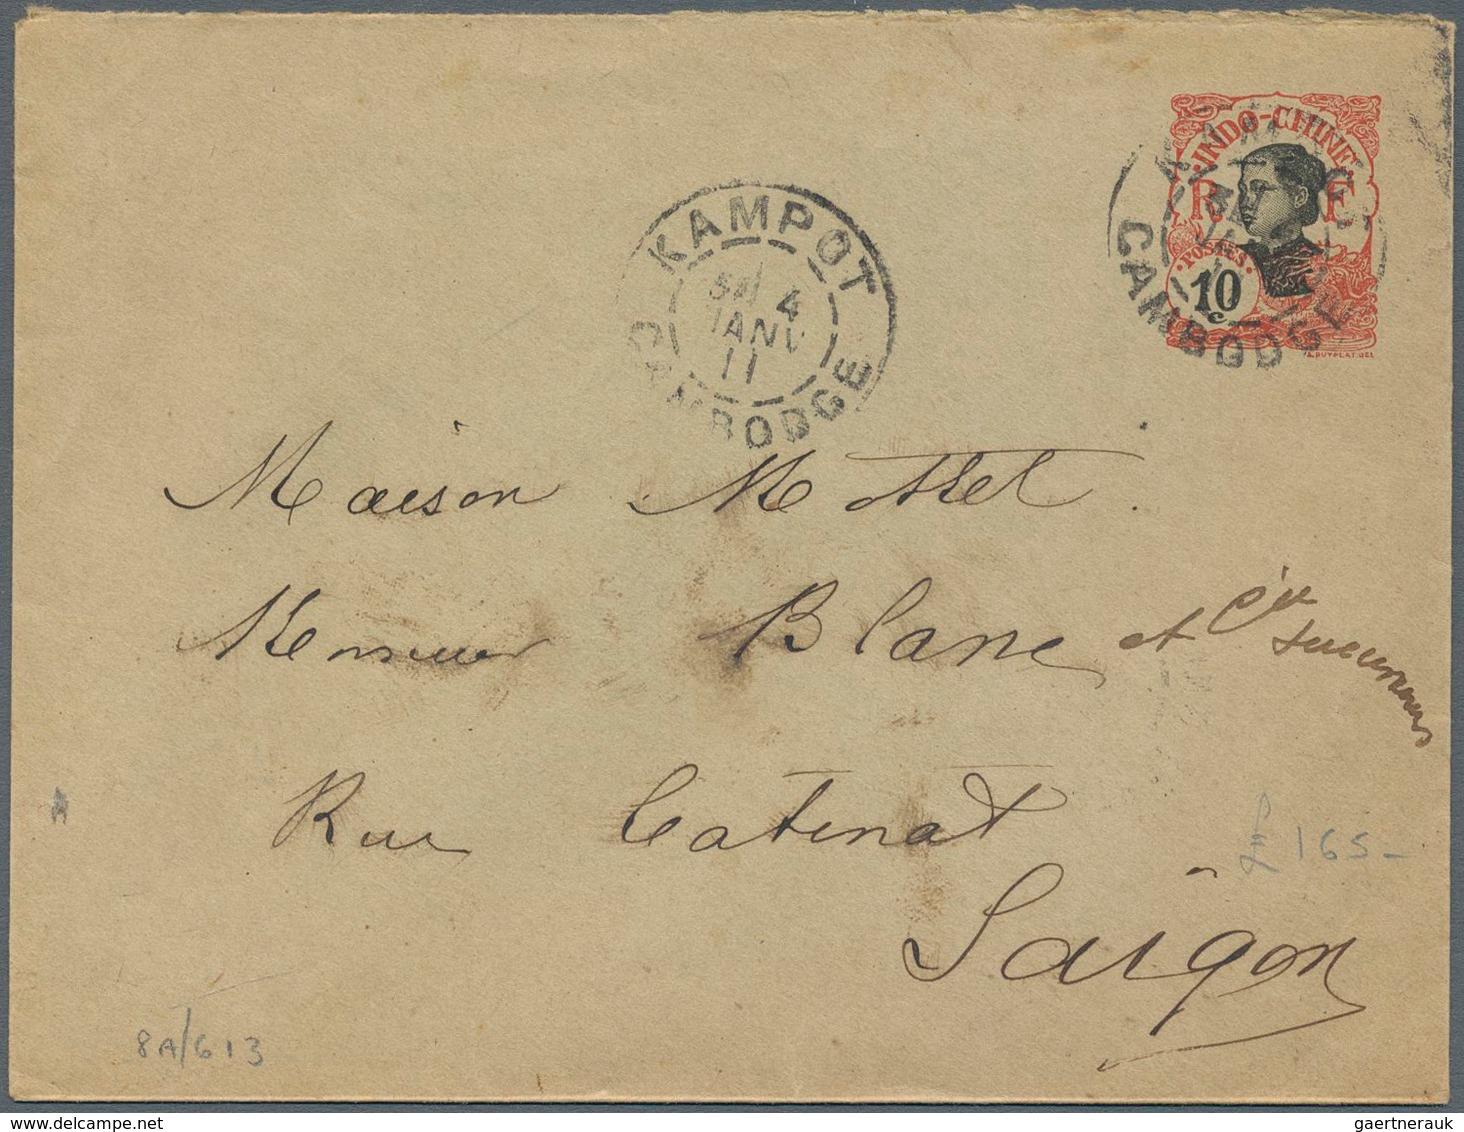 INDO-CHINE
R F
POSTES
10
c
A. PUYPLAT. DEL
KAMPOT
4
JANV
11
CAMBODGE
CAMBODGE
Maison Mottet
Monsieur Blanc et Cie
successeurs
Rue Catinat
Saïgon
£ 165-
8A/613
gaertnerauk